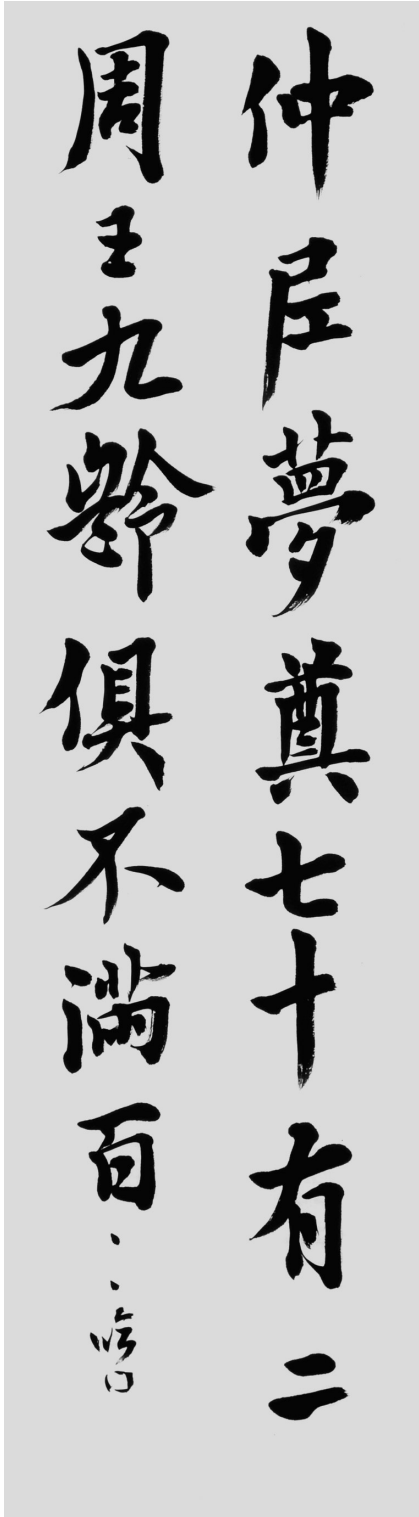 仲尼夢奠七十有二
周王九齡俱不滿百